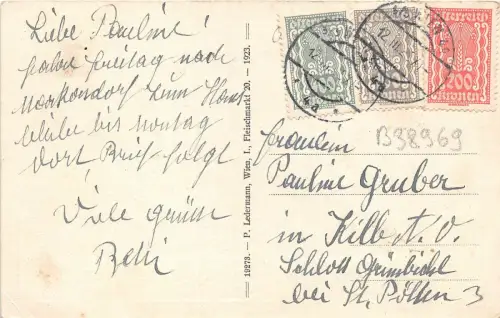 Liebe Pauline!
fahre Freitag nach
Markersdorf zum Hans
bleibe bis Montag
dort Brief folgt
Viele Grüsse
19273. – P. Ledermann, Wien, I., Fleischmarkt 20. – 1923.
Österreich
200
Kronen
B38969
Fräulein
Pauline Gruber
in Kilb N.Ö.
Schloss Grünbichl
bei St. Pölten